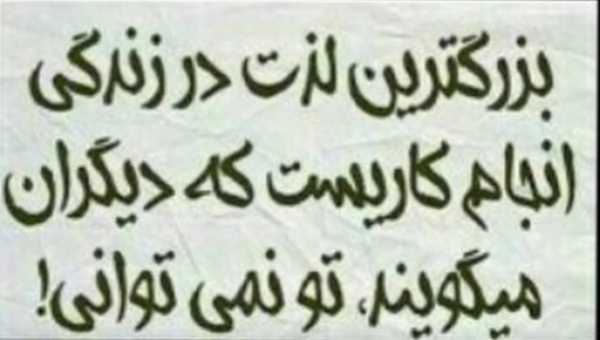 بزرگترین لذت در زندگی
انجام کاریست که دیگران
میگویند، تو نمی توانی!